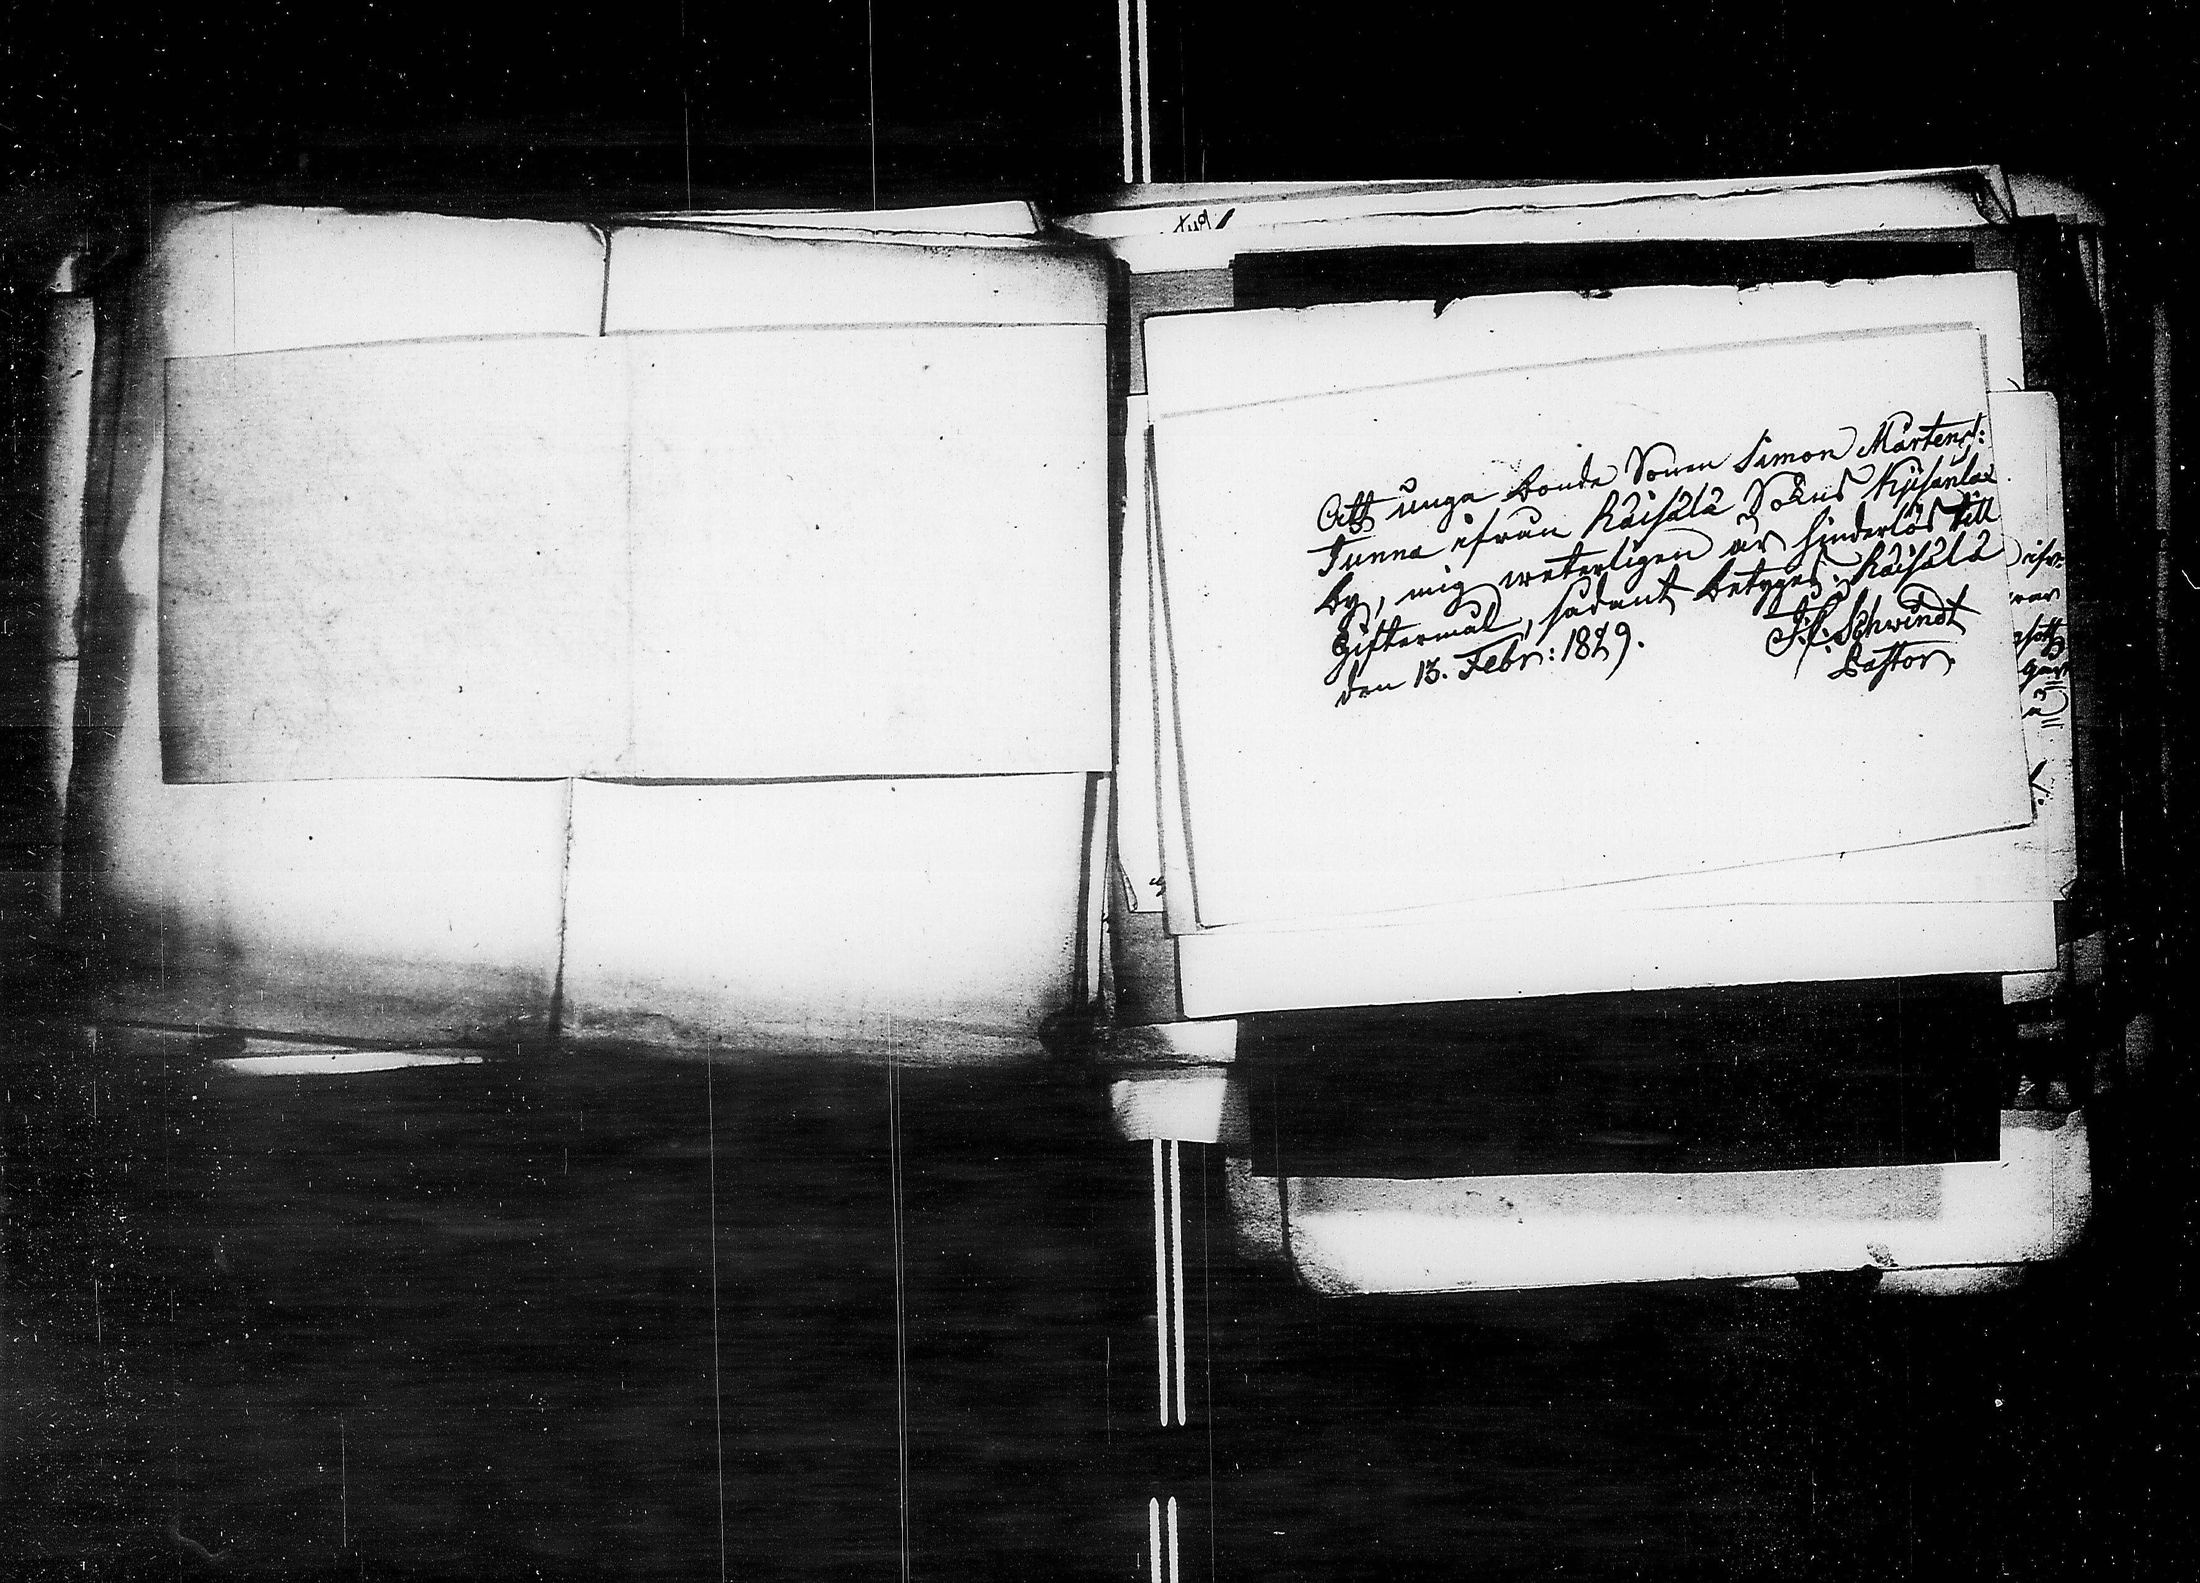 Att unga bonde Sonen Simon Mårtenss:
Junna ifrån Räisälä Sokns Kjisanlax
by, mig weterligen är hinderlös till
Giftermål, sådant betygas. Räisälä
den 13. Febr: 1829.
J: Schwindt
Pastor.